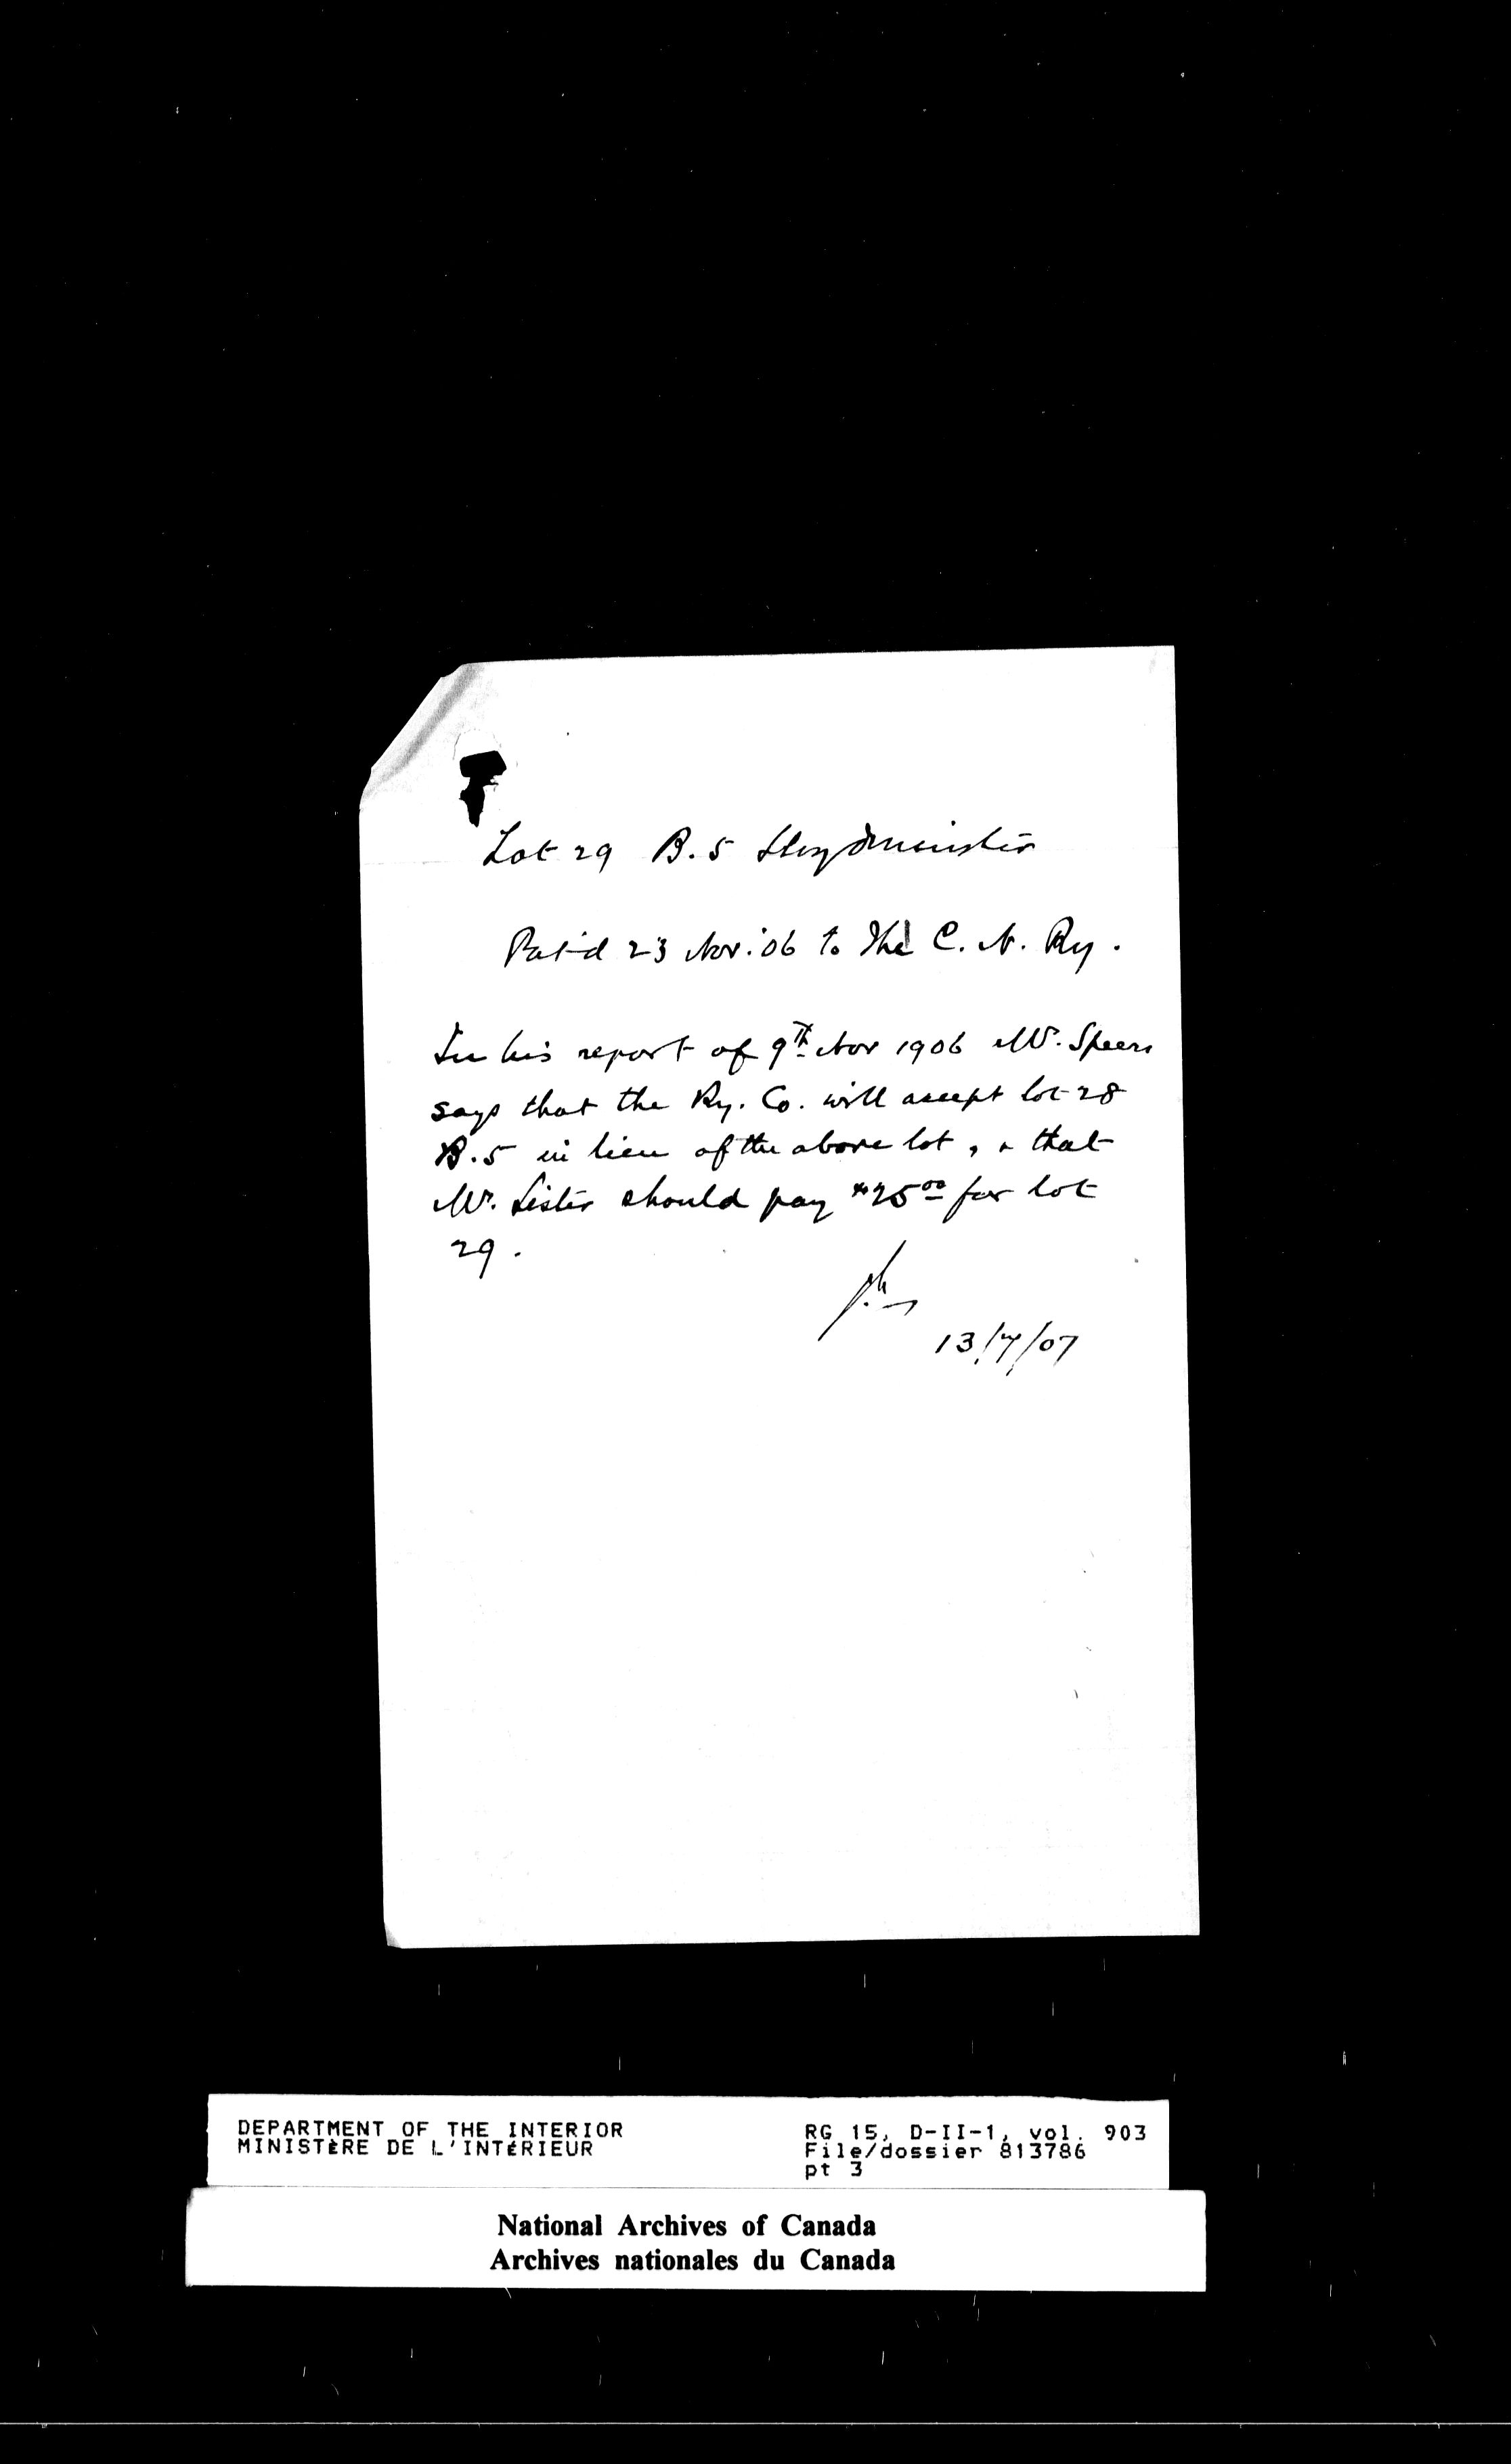 Lot 29 B.5 Lloydminster
Pat'd 23 Nov. '06 to the C. N. Ry.
In his report of 9th Nov 1906 Mr. Speers
says that the Ry. Co. will accept lot 28
B.5 in lieu of the above lot, & that
Mr. Lister should pay $25.00 for lot
29.
13/7/07
DEPARTMENT OF THE INTERIOR
MINISTÈRE DE L'INTÉRIEUR
RG 15, D-II-1, vol. 903
File/dossier 813786
pt 3
National Archives of Canada
Archives nationales du Canada